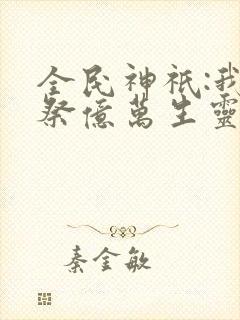 全民神祇:我
祭億萬生靈
秦金敏